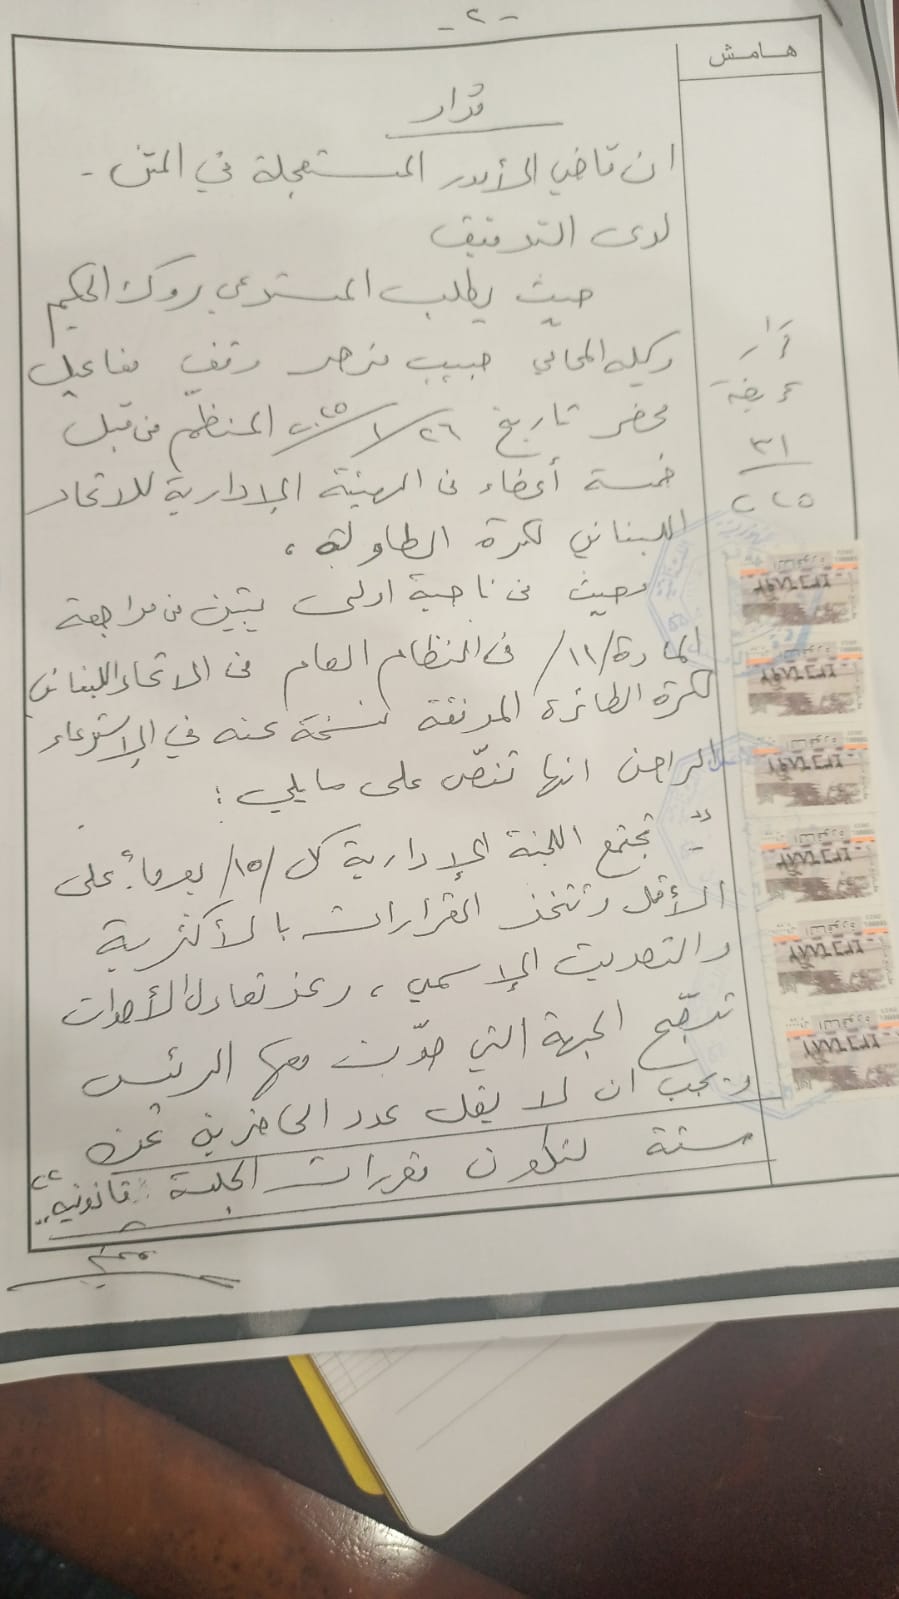 - ٢ -
هامش
قرار
ان قاضي الأمور المستعجلة في المتن -
لدى التدقيق
حيث يطلب المستدعي روك الحكيم
وكيله المحامي حبيب مزهر وقف مفاعيل
محضر تاريخ ٢٦/١/٢٠٢٥ المنظم من قبل
خمسة أعضاء من الهيئة الإدارية للاتحاد
اللبناني لكرة الطاولة،
وحيث من ناحية اولى يتبين من مراجعة
المادة /١١/ من النظام العام من الاتحاد اللبناني
لكرة الطائرة المرفقة نسخة عنه في الاستدعاء
الراهن انها تنصّ على ما يلي:
" تجتمع اللجنة الإدارية كل /١٥/ يوماً على
الأقل وتتخذ القرارات بالأكثرية
والتصويت الإسمي، وعند تعادل الأصوات
ترجّح الجهة التي صوّت معها الرئيس
ويجب ان لا يقل عدد الحاضرين عن
ستة لتكون مقررات الجلسة قانونية"
قرار
عريضة
٣١
٢٠٢٥